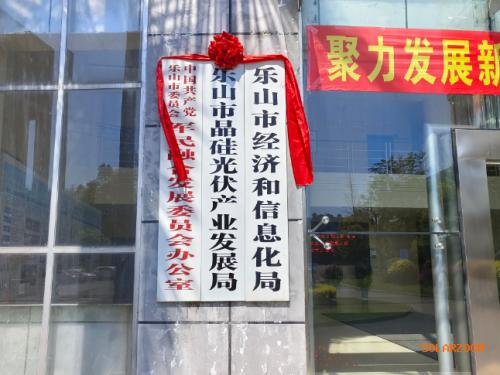 聚力发展新
乐山市经济和信息化局
乐山市晶硅光伏产业发展局
中国共产党
乐山市委员会
军民融合发展委员会办公室
SOLARZOOM